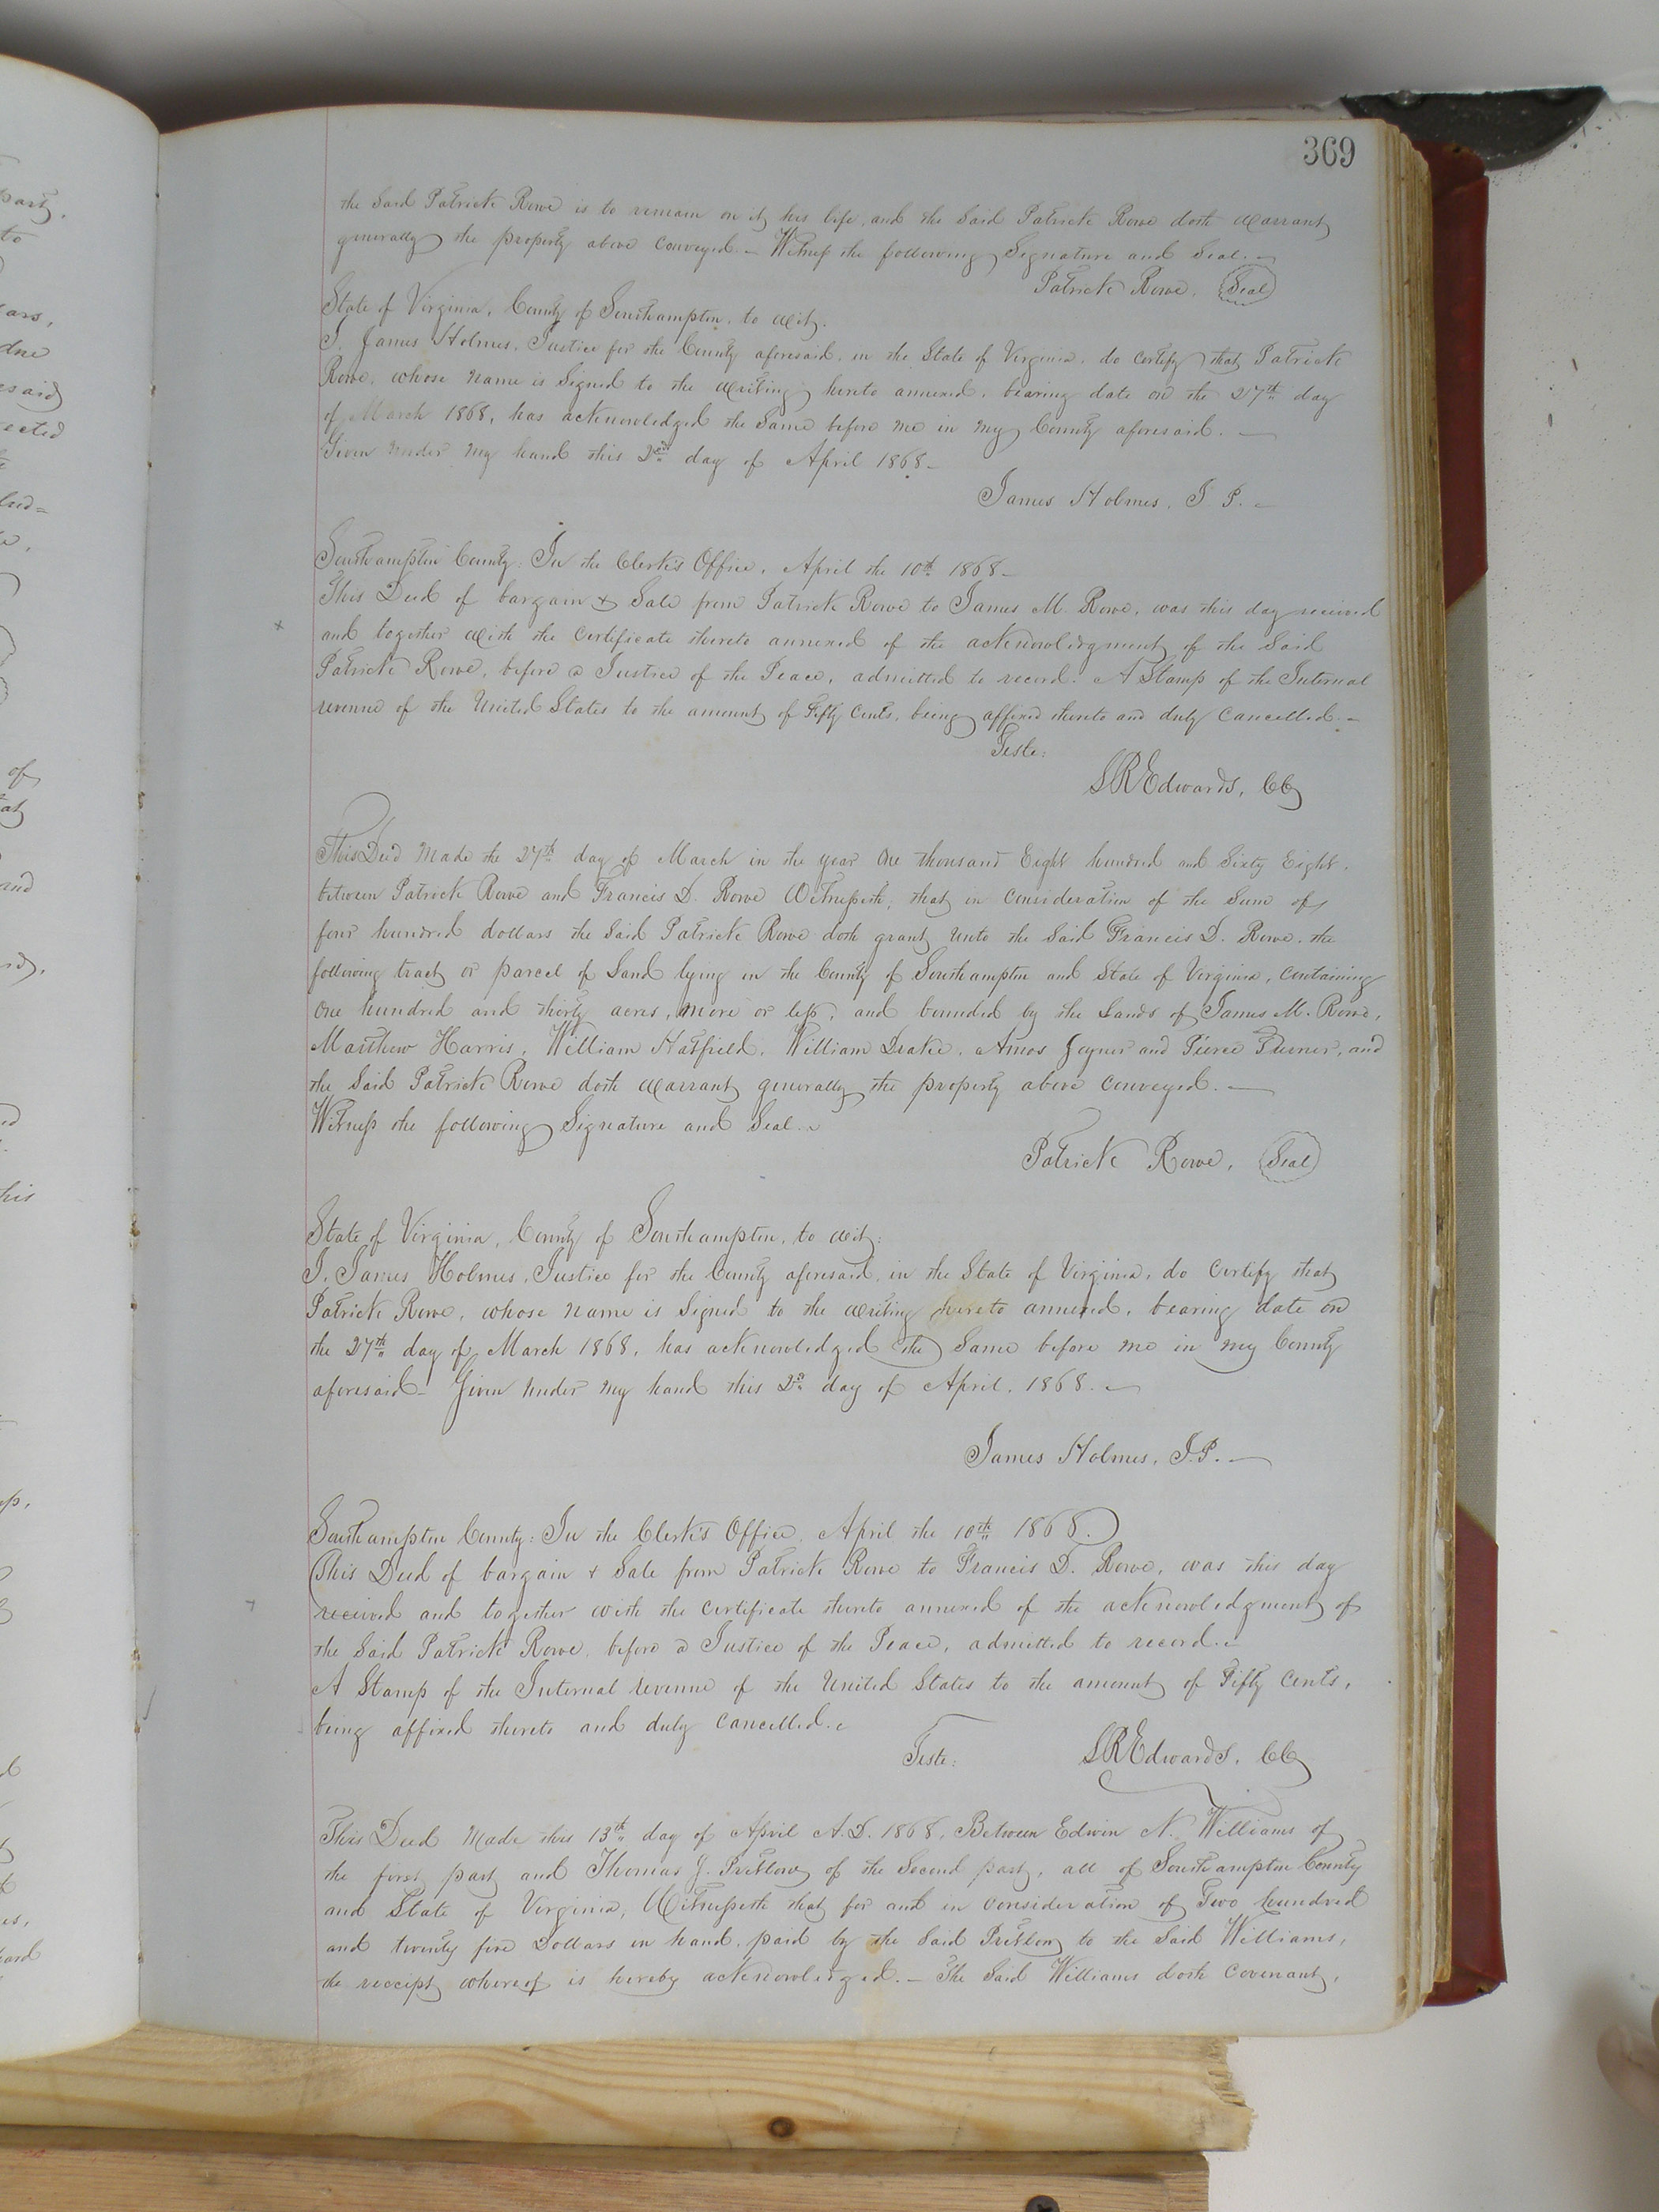 369
the Said Patrick Rowe is to remain on it his life, and the Said Patrick Rowe doth warrant
generally the property above conveyed. — Witness the following Signature and Seal. —
Patrick Rowe, Seal
State of Virginia, County of Southampton, to wit:
I, James Holmes, Justice for the County aforesaid, in the State of Virginia, do certify that Patrick
Rowe, whose name is Signed to the writing hereto annexed, bearing date on the 27th day
of March 1868, has acknowledged the Same before me in my County aforesaid. —
Given under my hand this 2nd day of April 1868 —
James Holmes, J. P. —
Southampton County: In the Clerk's Office, April the 10th 1868 —
This Deed of bargain & Sale from Patrick Rowe to James M. Rowe, was this day received
and together with the Certificate thereto annexed of the acknowledgment of the Said
Patrick Rowe, before a Justice of the Peace, admitted to record. A Stamp of the Internal
revenue of the United States to the amount of Fifty Cents, being affixed thereto and duly cancelled. —
Teste:
LREdwards, CC
This Deed Made the 27th day of March in the year One thousand Eight hundred and Sixty Eight,
between Patrick Rowe and Francis D. Rowe Witnesseth, that in consideration of the Sum of
four hundred dollars the Said Patrick Rowe doth grant unto the Said Francis D. Rowe, the
following tract or parcel of Land lying in the County of Southampton and State of Virginia, containing
One hundred and thirty acres, more or less, and bounded by the Lands of James M. Rowe,
Matthew Harris, William Hatfield, William Drake, Amos Joyner and Pierce Turner, and
the Said Patrick Rowe doth warrant generally the property above conveyed. —
Witness the following Signature and Seal. —
Patrick Rowe, Seal
State of Virginia, County of Southampton, to wit:
I, James Holmes, Justice for the County aforesaid, in the State of Virginia, do certify that
Patrick Rowe, whose name is Signed to the writing hereto annexed, bearing date on
the 27th day of March 1868, has acknowledged the Same before me in my County
aforesaid — Given under my hand this 2d day of April, 1868. —
James Holmes, J.P. —
Southampton County: In the Clerk's Office, April the 10th 1868.
This Deed of bargain & Sale from Patrick Rowe to Francis D. Rowe, was this day
received and together with the certificate thereto annexed of the acknowledgment of
the Said Patrick Rowe, before a Justice of the Peace, admitted to record. —
A Stamp of the Internal revenue of the United States to the amount of Fifty Cents,
being affixed thereto and duly cancelled. —
Teste: LREdwards, CC
This Deed Made this 13th day of April A.D. 1868, Between Edwin N. Williams of
the first part and Thomas J. Pretlow of the Second part, all of Southampton County
and State of Virginia, Witnesseth that for and in consideration of Two hundred
and twenty five Dollars in hand, paid by the Said Pretlow to the Said Williams,
the receipt whereof is hereby acknowledged. — The Said Williams doth Covenant,